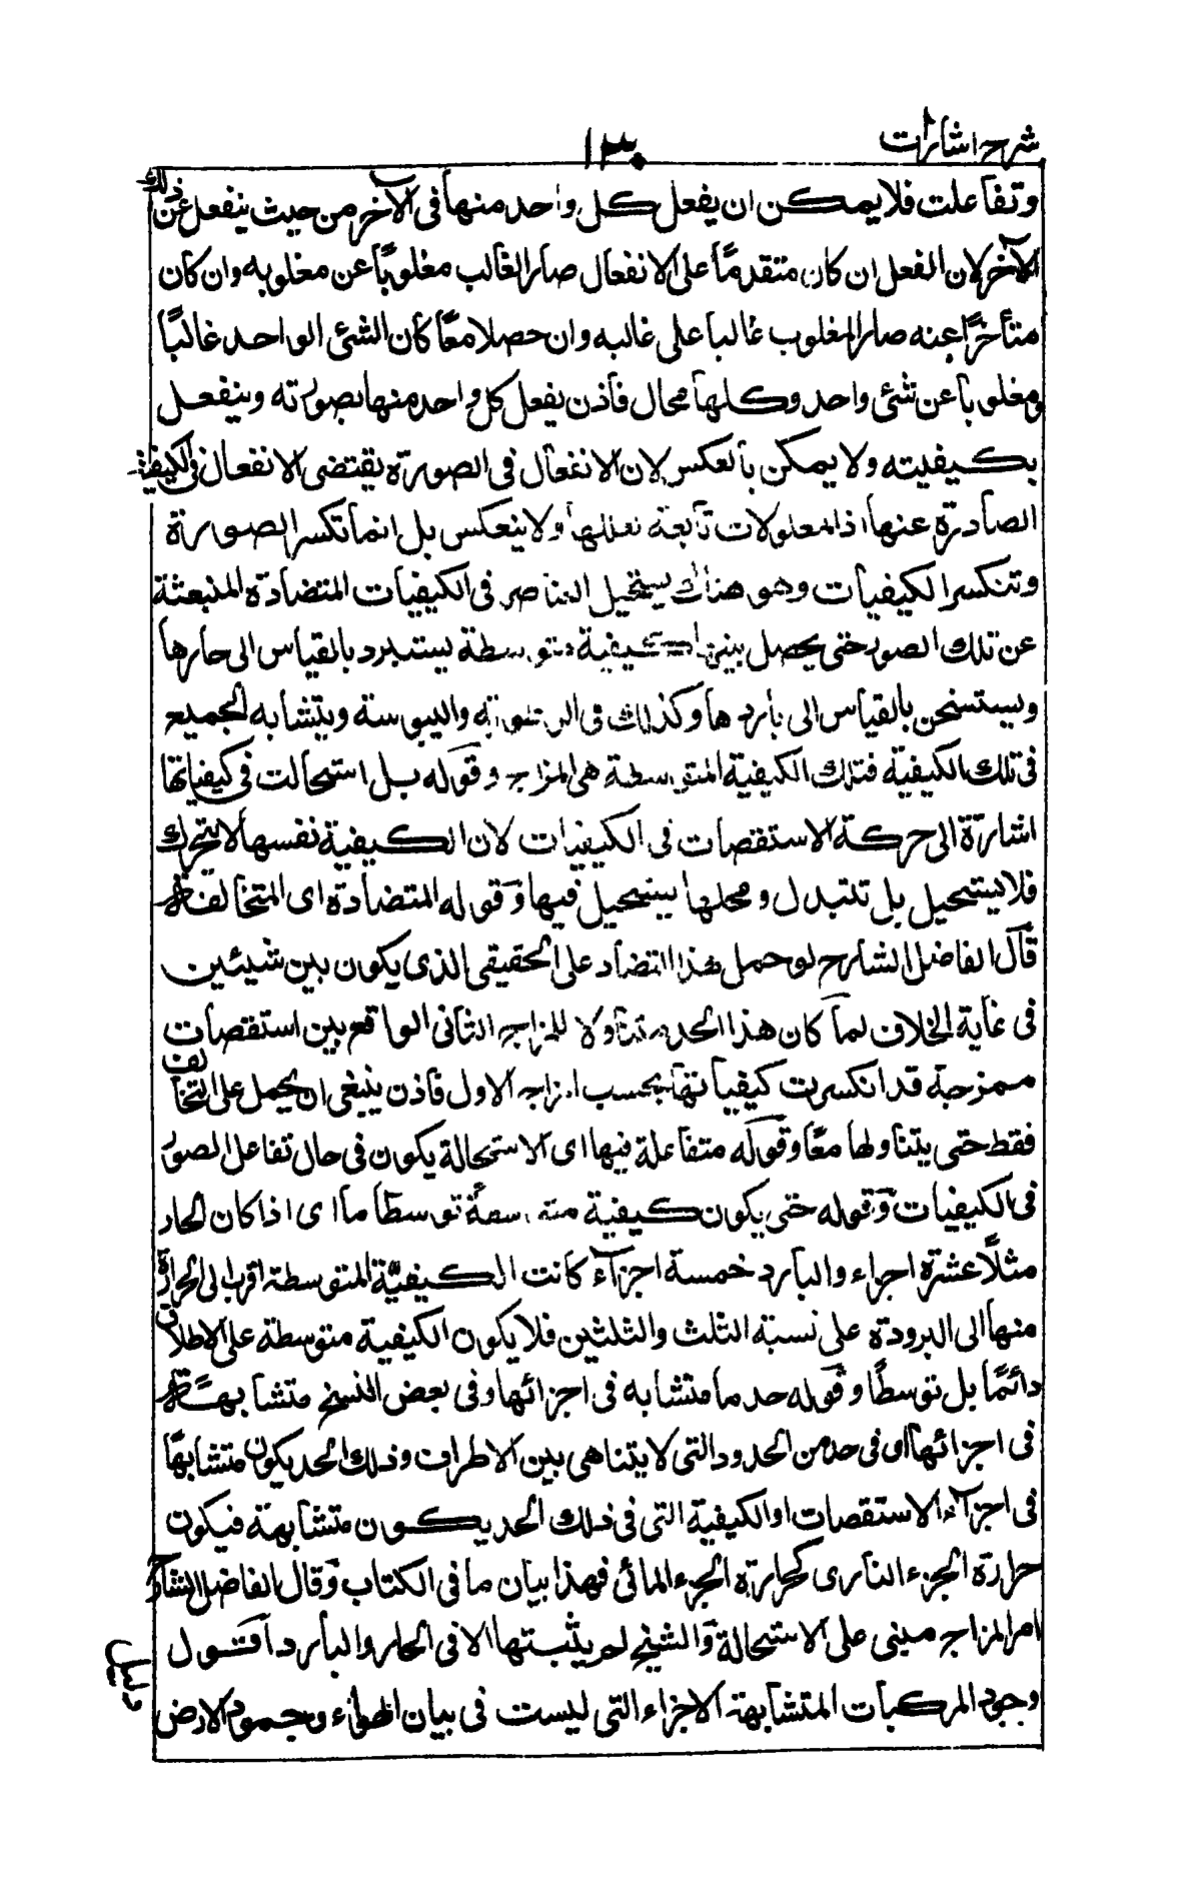 شرح اشارات
١٣٠
وتفاعلت فلا يمكن ان يفعل كل واحد منها فى الآخر من حيث ينفعل عن ذلك
الآخر لان الفعل ان كان متقدمًا على الانفعال صار الغالب مغلوبًا عن مغلوبه وان كان
متأخرًا عنه صار المغلوب غالبا على غالبه وان حصلا معًا كان الشئ الواحد غالبًا
ومغلوبا عن شئ واحد وكلها محال فاذن يفعل كل واحد منها بصورته وينفعل
بكيفيته ولا يمكن بالعكس لان الانفعال فى الصورة يقتضى الانفعال فى الكيفية
الصادرة عنها اذ المعلولات تابعة لعللها ولا ينعكس بل انما تكسر الصورة
وتنكسر الكيفيات وهو هناك يستحيل العناصر فى الكيفيات المتضادة المنبعثة
عن تلك الصور حتى يحصل بينها كيفية متوسطة يستبرد بالقياس الى حارها
ويستسخن بالقياس الى باردها وكذلك فى الرطوبة واليبوسة ويتشابه الجميع
فى تلك الكيفية فتلك الكيفية المتوسطة هى المزاج وقوله بل استحالت فى كيفياتها
اشارة الى حركة الاستقصات فى الكيفيات لان الكيفية نفسها لا يتحرك
فلا يستحيل بل تتبدل ومحلها يستحيل فيها وقوله المتضادة اى المتخالفة
قال الفاضل الشارح لو حمل هذا التضاد على الحقيقى الذى يكون بين شيئين
فى غاية الخلاف لما كان هذا الحد متناولا للمزاج الثانى الواقع بين استقصات
ممزجة قد انكسرت كيفياتها بحسب المزاج الاول فاذن ينبغى ان يحمل على التخالف
فقط حتى يتناولها معًا وقوله متفاعلة فيها اى الاستحالة يكون فى حال تفاعل الصور
فى الكيفيات وقوله حتى يكون كيفية متوسطة توسطا ما اى اذا كان الحار
مثلًا عشرة اجزاء والبارد خمسة اجزاء كانت الكيفيّة المتوسطة اقرب الى الحرارة
منها الى البرودة على نسبة الثلث والثلثين فلا يكون الكيفية متوسطة على الاطلاق
دائمًا بل توسطًا وقوله حد ما متشابه فى اجزائها وفى بعض النسخ متشابهة
فى اجزائها اى فى حد من الحدود التى لا يتناهى بين الاطراف وذلك الحد يكون متشابهًا
فى اجزاء الاستقصات او الكيفية التى فى ذلك الحد يكون متشابهة فيكون
حرارة الجزء النارى كحرارة الجزء المائى فهذا بيان ما فى الكتاب وقال الفاضل الشارح
امر المزاج مبنى على الاستحالة والشيخ لم يثبتها الا فى الحار والبارد اقول
وجود المركبات المتشابهة الاجزاء التى ليست فى بيان الهواء وجمود الارض
دليل